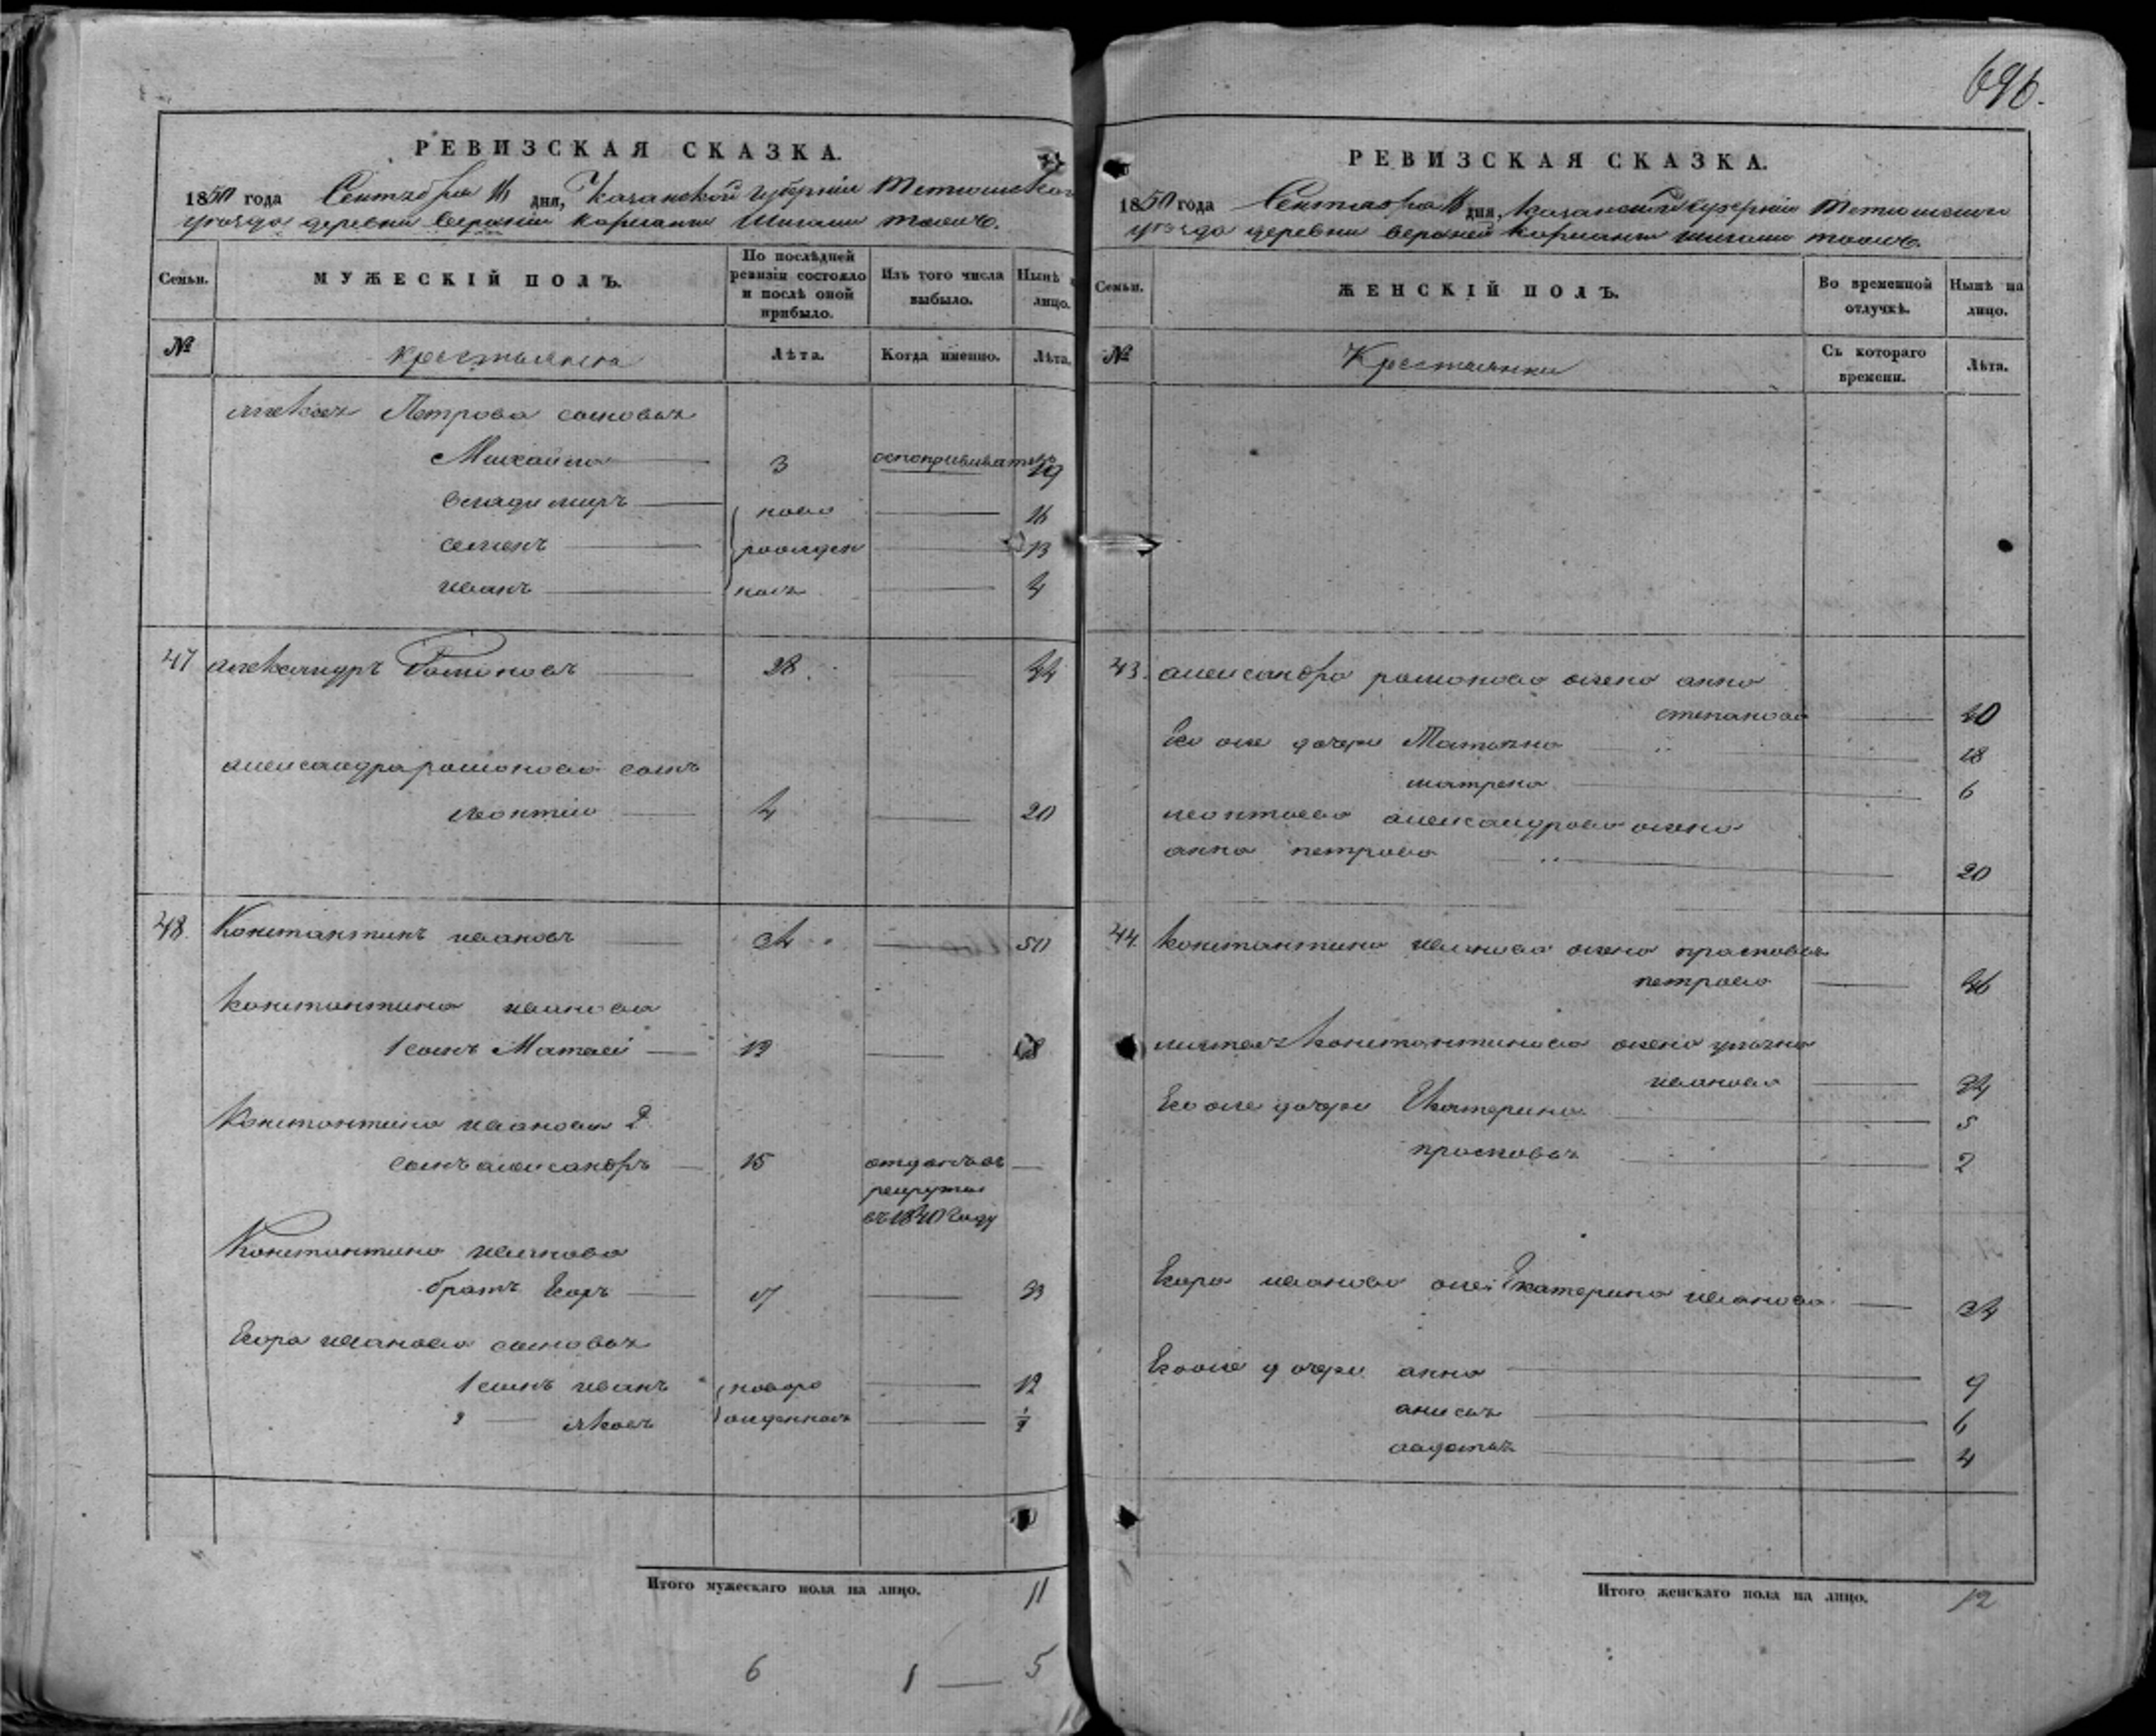 696.
РЕВИЗСКАЯ СКАЗКА.
1850 года Сентября 16 дня, Казанской губернии Тетюшскаго
уезда деревни верхнии
Семьи.
МУЖЕСКІЙ ПОЛЪ.
По послѣдней ревизіи состояло и послѣ оной прибыло.
Изъ того числа выбыло.
Нынѣ лицо.
№
Крестьяне
Лѣта.
Когда именно.
Лѣта.
Алексея Петрова сыновья
Михайла 3 оспопрививатель 19
владимиръ ново 16
семенъ рожден 13
иванъ ныя 4
47 александръ Романовъ 28
александра романова сынъ
леонтии 4 20
48. Константинъ ивановъ 34 50
константина иванова
1 сынъ Матвей
Константина иванова 2
сынъ александръ 15 отданъ въ
рекруты
въ 1840 году
Константина иванова
братъ Егоръ 17 33
Егора иванова сыновья
1 сынъ иванъ новоро 12
2 яковъ жденныя
Итого мужескаго пола на лицо. 11
6 1 — 5
РЕВИЗСКАЯ СКАЗКА.
1850 года Сентября 16 дня, казанской губернии Тетюшскаго
уезда деревни верхней
Семьи.
ЖЕНСКІЙ ПОЛЪ.
Во временной отлучкѣ.
Нынѣ на лицо.
№
Крестьянки
Съ котораго времени.
Лѣта.
43. александра романова жена анна
степанова 40
Его же дочери Татьяна 18
матрена 6
леонтьева александрова жена
анна петрова 20
44. константина иванова жена прасковья
петрова 46
константинова жена
иванова 34
Его же дочери Екатерина 5
прасковья 2
Егора иванова же: Екатерина иванова 34
Его же дочери анна 9
анисья 6
авдотья 4
Итого женскаго пола на лицо. 12